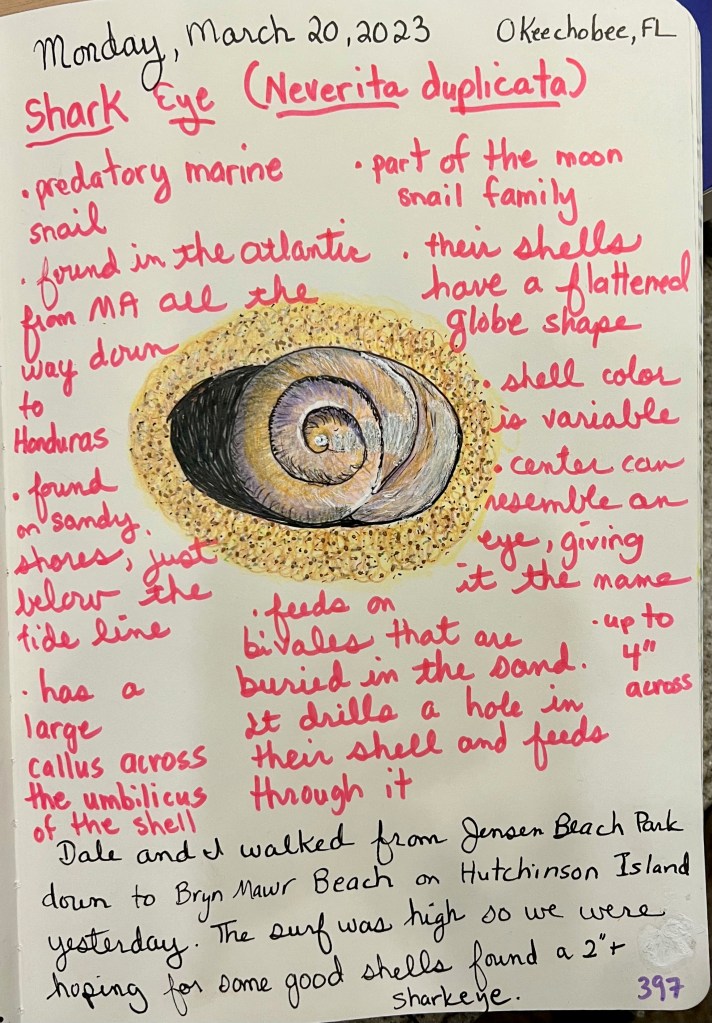 Monday, March 20, 2023
OKeechobee, FL
Shark Eye (Neverita duplicata)
• predatory marine
snail
• found in the atlantic
from MA all the
way down
to
Honduras
• found
on sandy
shores, just
below the
tide line
• has a
large
callus across
the umbilicus
of the shell
• part of the moon
snail family
• their shells
have a flattened
globe shape
• shell color
is variable
• center can
resemble an
eye, giving
it the name
• feeds on
bivales that are
buried in the sand.
It drills a hole in
their shell and feeds
through it
• up to
4"
across
Dale and I walked from Jensen Beach Park
down to Bryn Mawr Beach on Hutchinson Island
yesterday. The surf was high so we were
hoping for some good shells found a 2"+
sharkeye.
397